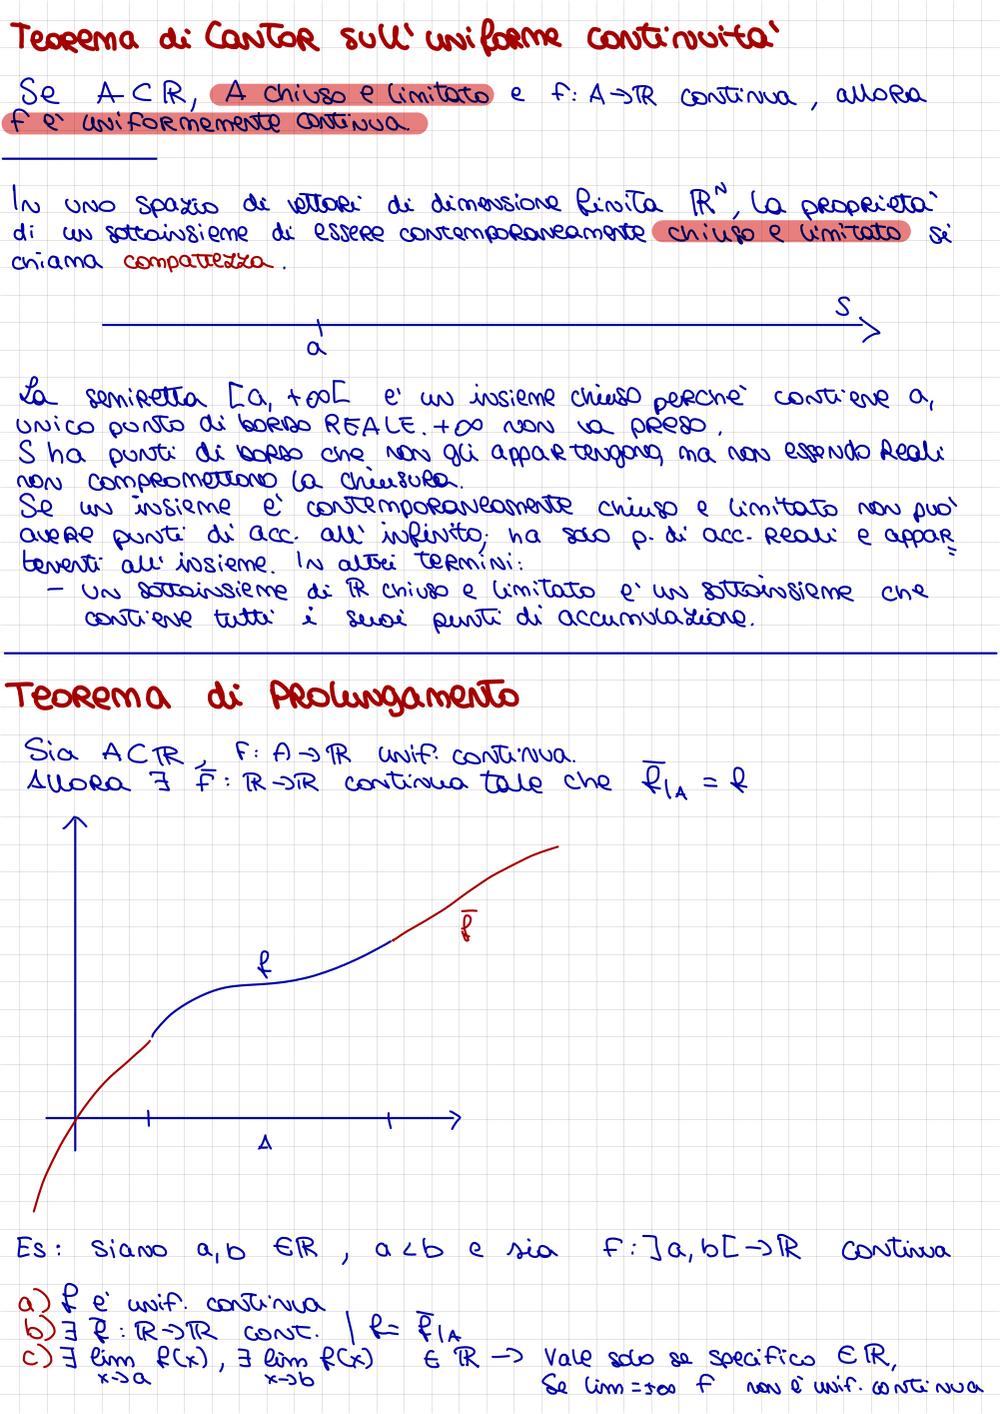 Teorema di Cantor sull'uniforme continuità
Se A⊂ℝ, A chiuso e limitato e f: A→ℝ continua, allora
f è uniformemente continua.
In uno spazio di vettori di dimensione finita ℝᴺ, la proprietà
di un sottoinsieme di essere contemporaneamente chiuso e limitato si
chiama compattezza.
S
a
La semiretta [a, +∞[ è un insieme chiuso perché contiene a,
unico punto di bordo REALE. +∞ non va preso.
S ha punti di bordo che non gli appartengono, ma non essendo Reali
non compromettono la chiusura.
Se un insieme è contemporaneamente chiuso e limitato non può
avere punti di acc. all'infinito; ha solo p. di acc. Reali e appar=
tenenti all'insieme. In altri termini:
- un sottoinsieme di ℝ chiuso e limitato è un sottoinsieme che
contiene tutti i suoi punti di accumulazione.
Teorema di Prolungamento
Sia A⊂ℝ, f: A→ℝ unif. continua.
Allora ∃ f̄: ℝ→ℝ continua tale che f̄|A = f
f̄
f
A
Es: siano a,b ∈ℝ, a<b e sia f: ]a,b[→ℝ continua
a) f è unif. continua
b) ∃ f̄: ℝ→ℝ cont. | f= f̄|A
c) ∃ lim f(x), ∃ lim f(x) ∈ ℝ → Vale solo se specifico ∈ℝ,
x→a x→b Se lim=±∞ f non è unif. continua